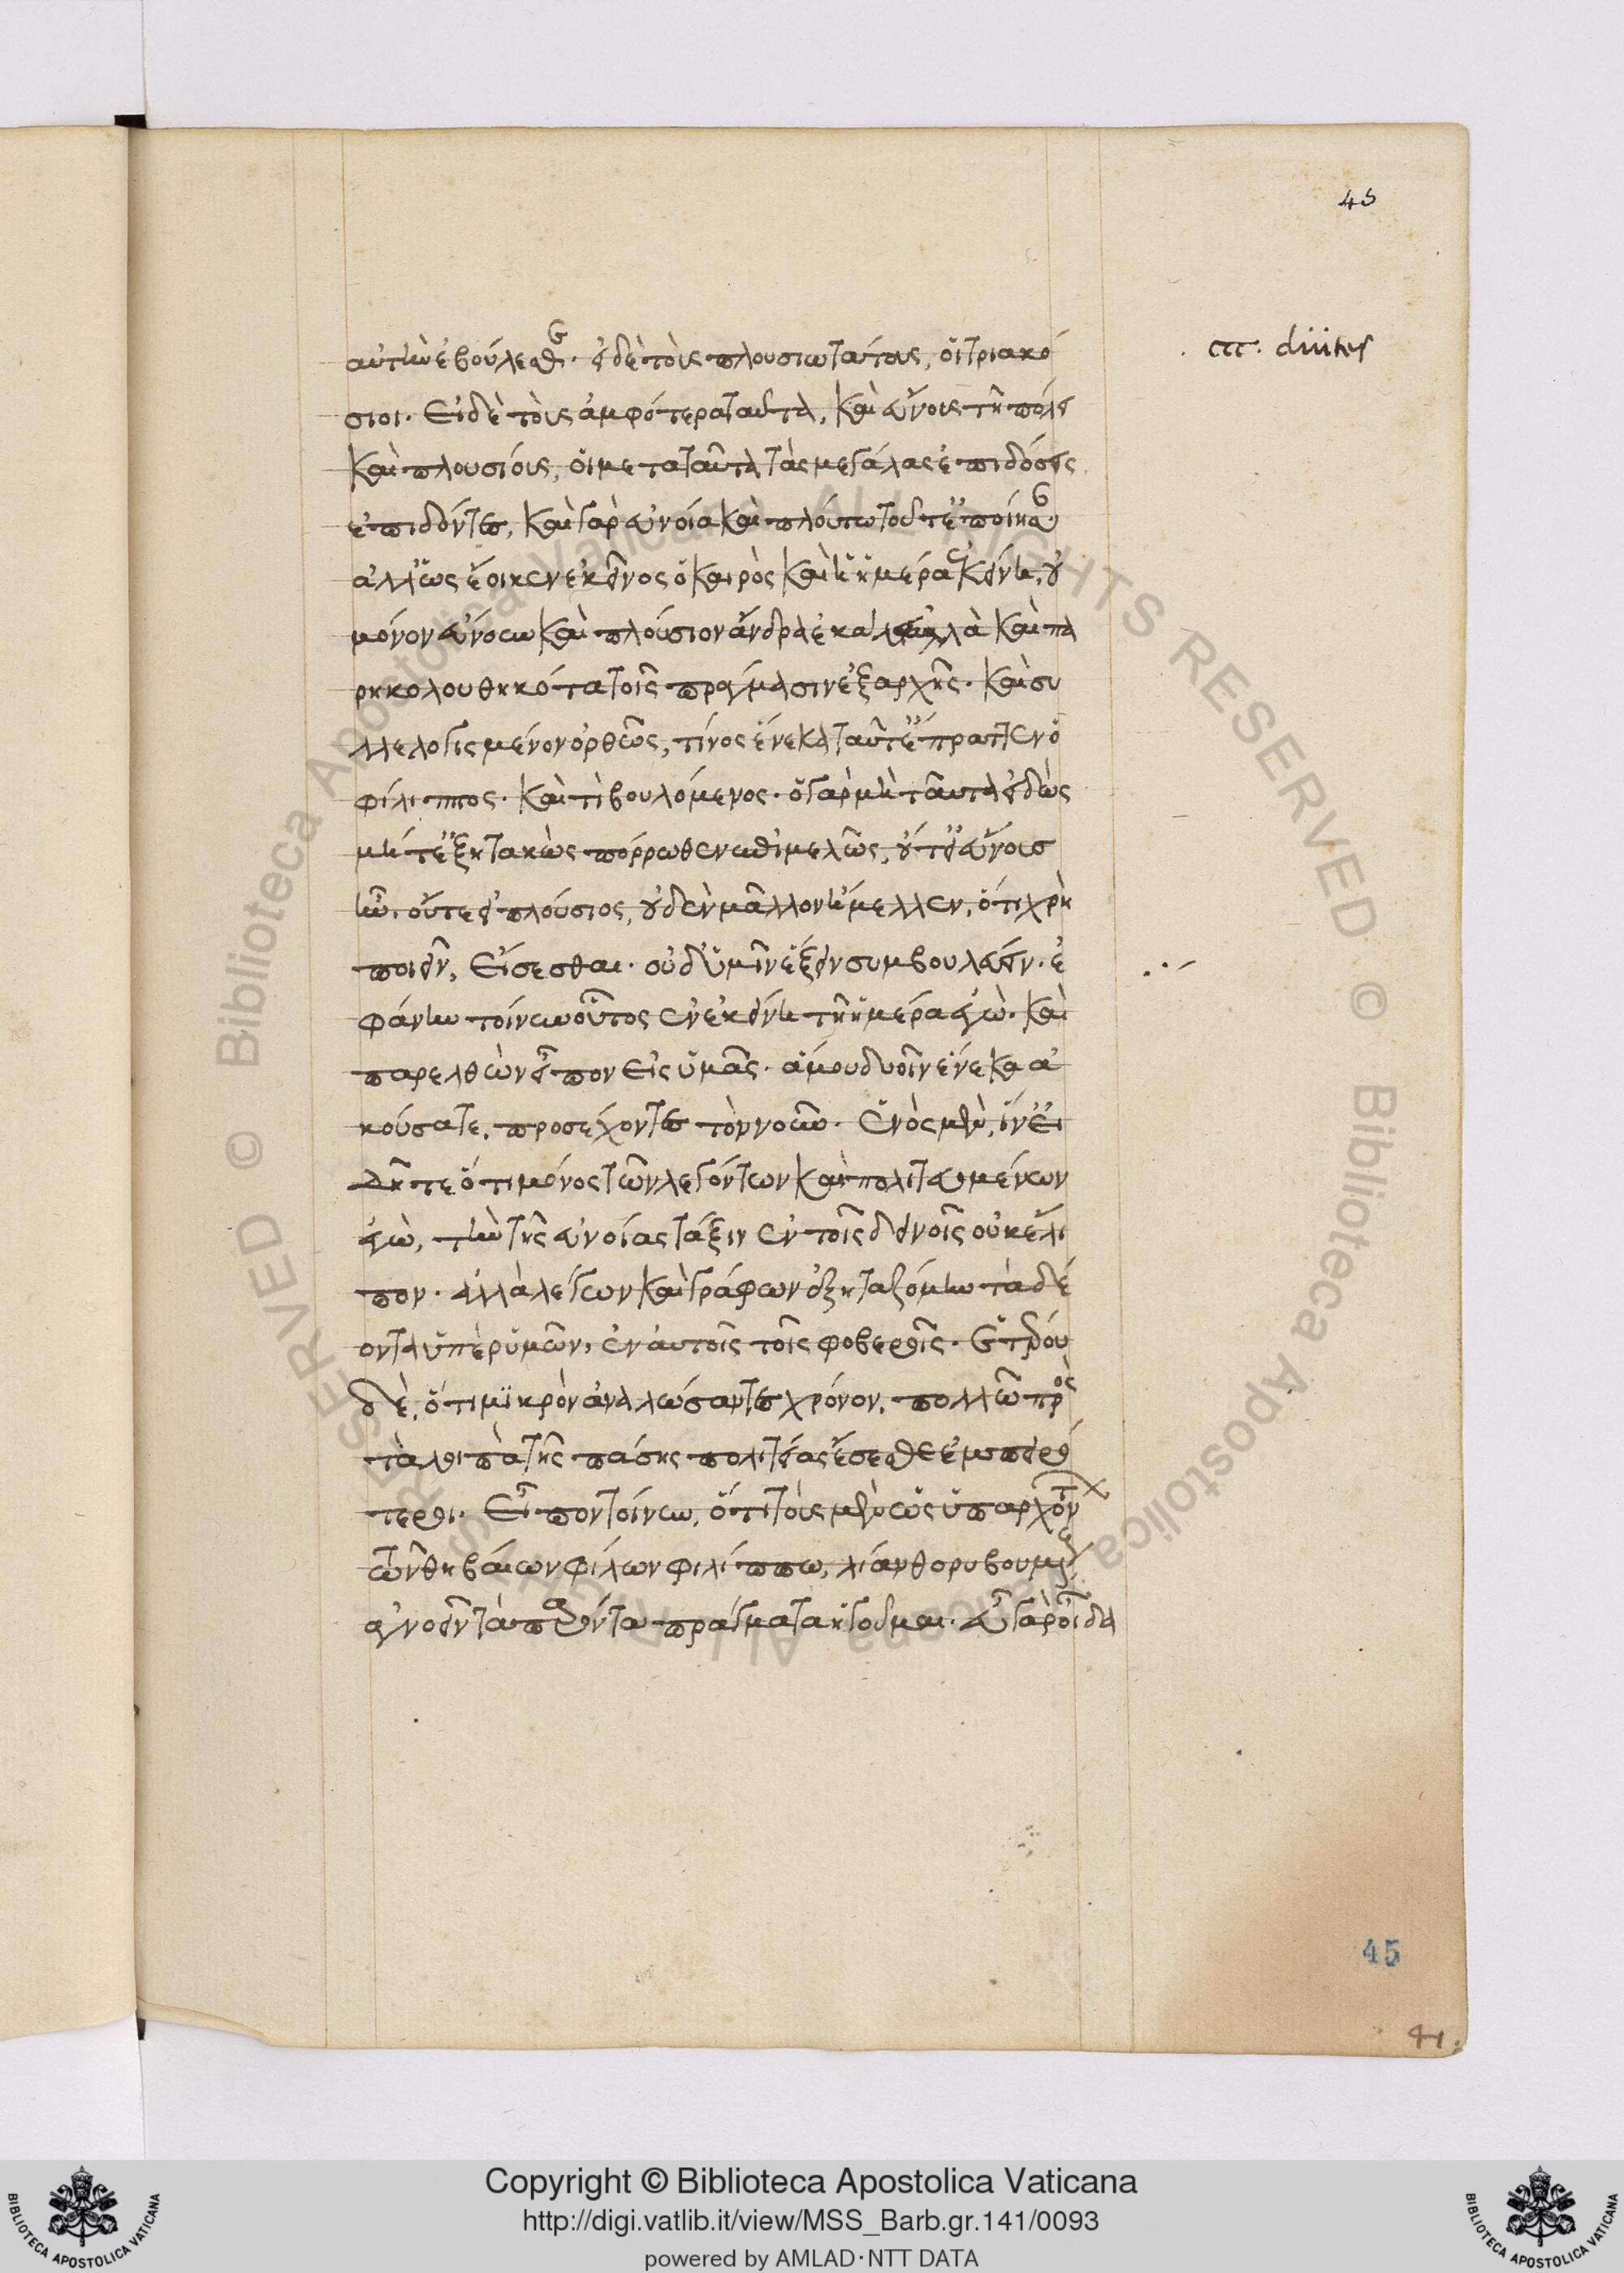 45
ccc. diuites
αὐτὴν ἐβούλεσθε. εἰ δὲ τοὺς πλουσιωτάτους, οἱ τριακό
σιοι. εἰ δὲ τοὺς ἀμφότερα ταῦτα, καὶ εὔνους τῇ πόλει
καὶ πλουσίους, οἱ μετα ταῦτα τὰς μεγάλας ἐπιδόσεις
ἐπιδόντες, καὶ γὰρ εὐνοία καὶ πλούτω τοῦτ' ἐποίησαν
ἀλλ' ὡς ἔοικεν ἐκεῖνος ὁ καιρὸς καὶ ἡ ἡμέρα ἐκείνη, οὐ
μόνον εὔνουν καὶ πλούσιον ἄνδρα ἐκάλει, ἀλλὰ καὶ πα
ρηκολουθηκότα τοῖς πράγμασιν ἐξ ἀρχῆς. καὶ συ
λλελογισμένον ὀρθῶς, τίνος ἕνεκα ταῦτ' ἔπραττεν ὁ
φίλιππος. καὶ τί βουλόμενος. ὁ γὰρ μὴ ταῦτα εἰδὼς
μήτ' ἐξητακὼς πόρρωθεν ἐπιμελῶς, οὔτ' εἰ εὔνους
ἦν. οὔτε εἰ πλούσιος, οὐδὲν μᾶλλον ἤμελλεν, ὅτι χρὴ
ποιεῖν, εἴσεσθαι. οὐδ' ὑμῖν ἕξειν συμβουλεύειν. ἐ
φάνην τοίνυν οὗτος ἐν ἐκείνη τῇ ἡμέρα ἐγώ. καὶ
παρελθὼν εἶπον εἰς ὑμᾶς. ἅ μου δυοῖν ἕνεκα ἀ
κούσατε, προσέχοντες τὸν νοῦν. ἑνὸς μὲν, ἵν' εἰ
δῆτε ὅτι μόνος τῶν λεγόντων καὶ πολιτευομένων
ἐγὼ, τὴν τῆς εὐνοίας τάξιν ἐν τοῖς δεινοῖς οὐκ ἔλι
πον. ἀλλὰ λέγων καὶ γράφων ἐξηταζόμην τὰ δέ
οντα ὑπὲρ ὑμῶν, ἐν αὐτοῖς τοῖς φοβεροῖς. ἑτέρου
δὲ, ὅτι μικρὸν ἀναλώσαντες χρόνον, πολλῶ πρὸς
τὰ λοιπὰ τῆς πάσης πολιτείας ἔσεσθε ἐμπειρό
τεροι. εἶπον τοίνυν, ὅτι τοὺς μὲν ὡς ὑπαρχόντων
τῶν θηβαίων φίλων φιλίππω, λίαν θορυβουμένους
ἀγνοεῖν τὰ παρόντα πράγματα ἡγοῦμαι. εὖ γὰρ οἶδα
45